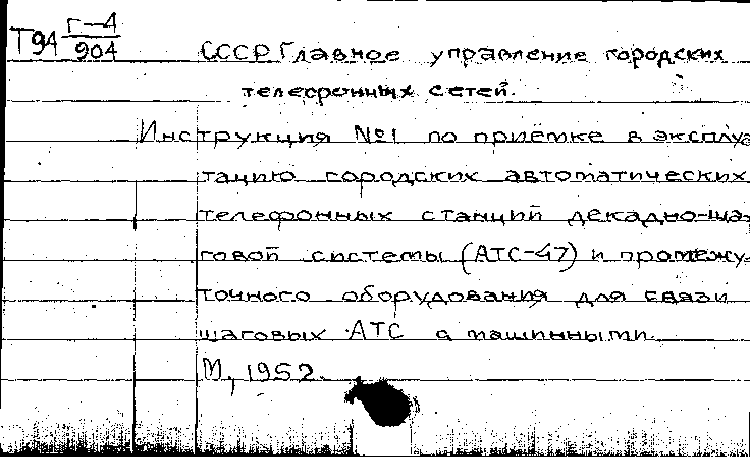 Т94 Г-4
904
СССР Главное управление городских
телефонных сетей.
Инструкция №1 по приёмке в эксплуа
тацию городских автоматических
телефонных станций декадно-ша-
говой системы (АТС-47) и промежу-
точного оборудования для связи
шаговых АТС с машинными.
М, 1952.